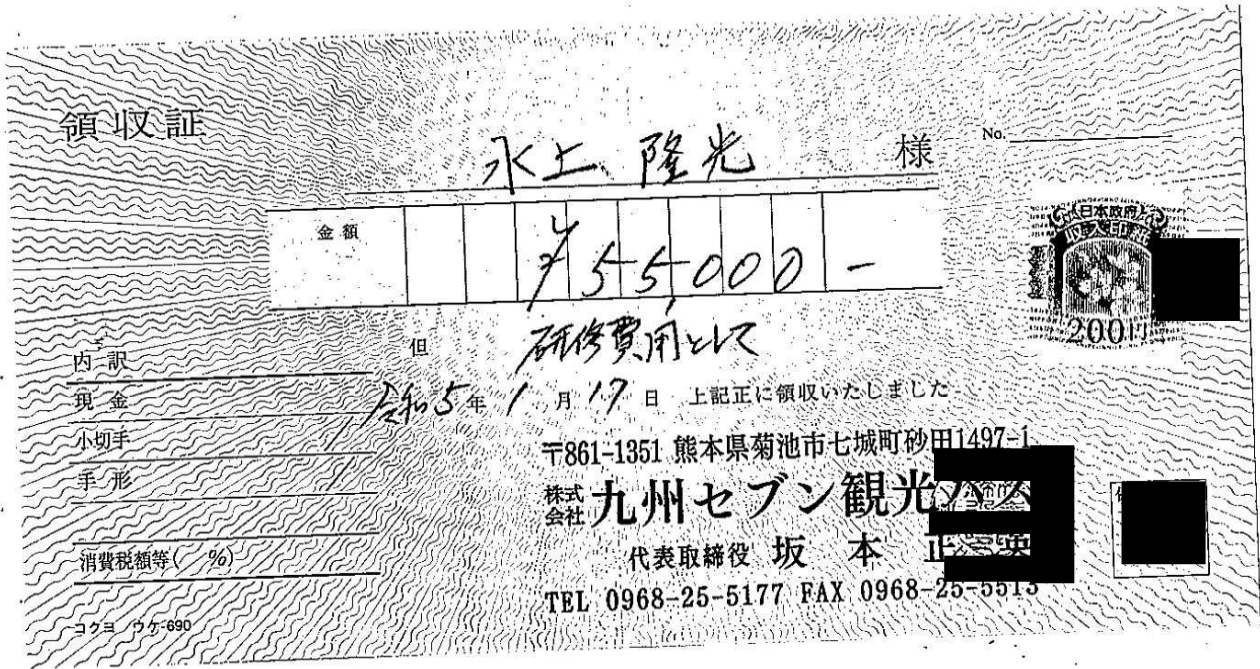 領収証
水上 隆光 様
No.
金額 ¥55000-
日本政府
200円
但 研修費用として
内訳
令和5年1月17日 上記正に領収いたしました
現金
小切手
手形
〒861-1351 熊本県菊池市七城町砂田1497-1
株式会社 九州セブン観光バス
代表取締役 坂本正
消費税額等( %)
TEL 0968-25-5177 FAX 0968-25-5513
コクヨ ウケ-690